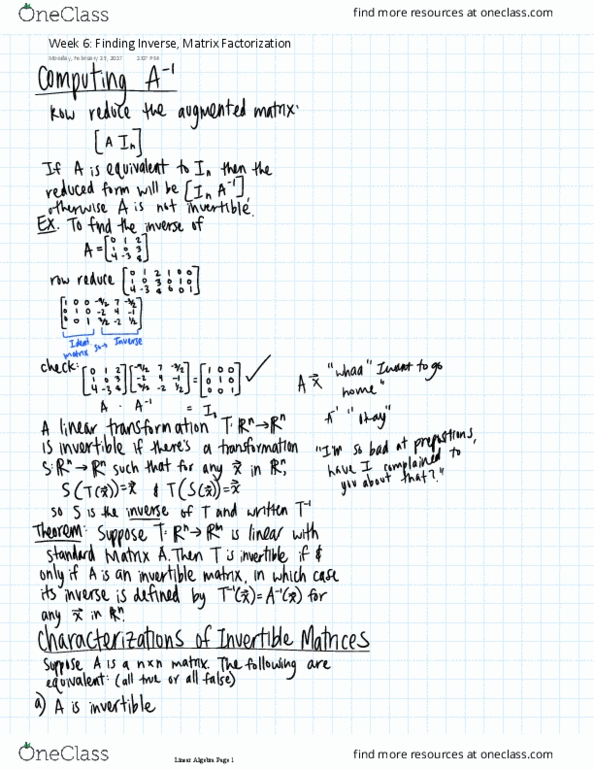 OneClass
find more resources at oneclass.com
Week 6: Finding Inverse, Matrix Factorization
Computing A⁻¹
Row reduce the augmented matrix:
[A Iₙ]
If A is equivalent to Iₙ then the
reduced form will be [Iₙ A⁻¹],
otherwise A is not invertible.
Ex. To find the inverse of
A = [0 1 2
1 0 3
4 -3 8]
row reduce [0 1 2 1 0 0
1 0 3 0 1 0
4 -3 8 0 0 1]
[1 0 0 -9/2 7 -3/2
0 1 0 -2 4 -1
0 0 1 3/2 -2 1/2]
Ident Inverse
matrix so→
check: [0 1 2
1 0 3
4 -3 8] [-9/2 7 -3/2
-2 4 -1
3/2 -2 1/2] = [1 0 0
0 1 0
0 0 1] ✓
A · A⁻¹ = Iₙ
A x⃗ "whaa" I want to go
home"
"Okay"
"I'm so bad at prepostions,
have I complained to
you about that?"
A linear transformation T: ℝⁿ→ℝⁿ
is invertible if there's a transformation
S: ℝⁿ→ℝⁿ such that for any x⃗ in ℝⁿ,
S(T(x⃗))=x⃗ & T(S(x⃗))=x⃗
so S is the inverse of T and written T⁻¹
Theorem: Suppose T: ℝⁿ→ℝⁿ is linear with
standard Matrix A. Then T is invertible if &
only if A is an invertible matrix, in which case
its inverse is defined by T⁻¹(x⃗)=A⁻¹(x⃗) for
any x⃗ in ℝⁿ.
Characterizations of Invertible Matrices
Suppose A is a n×n matrix. The following are
equivalent: (all true or all false)
a) A is invertible
Linear Algebra Page 1
OneClass
find more resources at oneclass.com